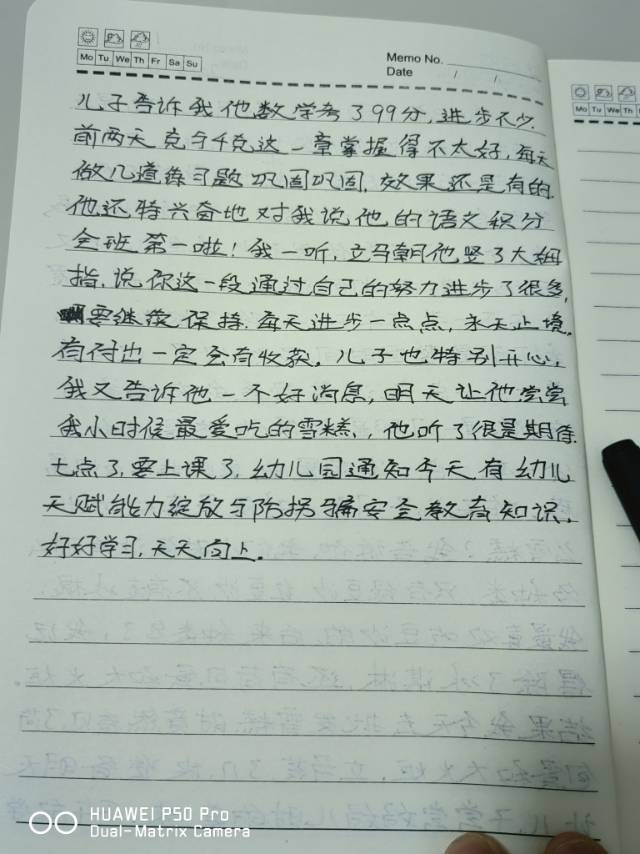 Memo No.
Mo Tu We Th Fr Sa Su
Date / /
Mo Tu We Th
儿子告诉我他数学考了99分,进步不少.
前两天克与千克这一章掌握得不太好,每天
做几道练习题巩固巩固,效果还是有的.
他还特兴奋地对我说他的语文积分
全班第一啦!我一听,立马朝他竖了大姆
指,说你这一段通过自己的努力进步了很多,
要继续保持.每天进步一点点,永无止境.
有付出一定会有收获.儿子也特别开心,
我又告诉他一个好消息,明天让他尝尝
我小时候最爱吃的雪糕.,他听了很是期待.
七点了,要上课了,幼儿园通知今天有幼儿
天赋能力绽放与防拐骗安全教育知识.
好好学习,天天向上.
HUAWEI P50 Pro
Dual-Matrix Camera